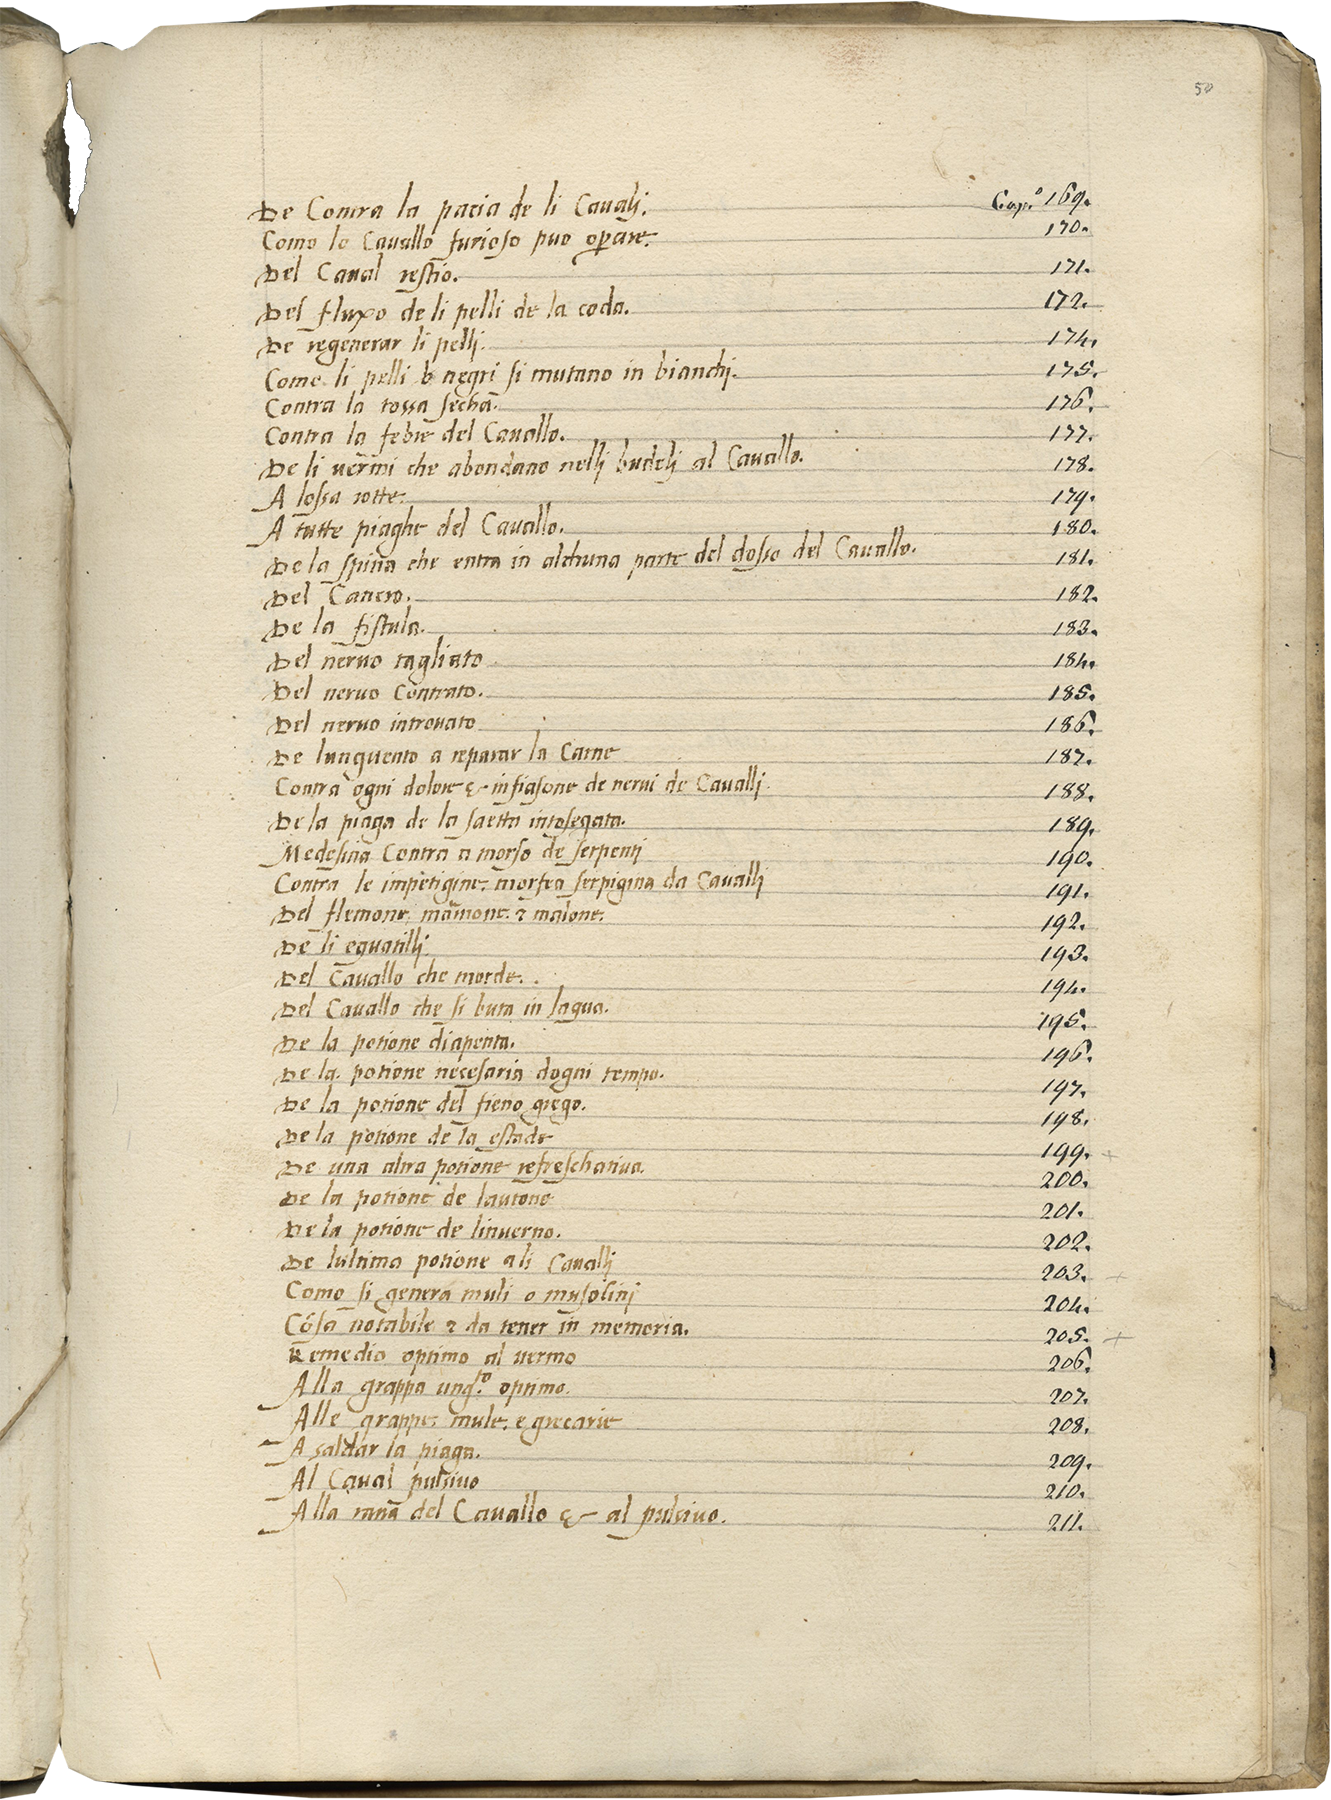 50
De Contra la pacia de li Cavalj. Cap.º 169.
Como lo Cauallo furioso puo operare. 170.
Del Caual restio. 171.
Del fluxo de li pelli de la coda. 172.
De regenerar li pellj. 174.
Come li pelli negri si mutano in bianchi. 175.
Contra la tossa sechã. 176.
Contra la febre del Cauallo. 177.
De li uermi che abondano nellj budelj al Cauallo. 178.
A lossa rotte. 179.
A tutte piaghe del Cauallo. 180.
De la spina che entra in alchuna parte del dosso del Cauallo. 181.
Del Cancro. 182.
De la fistula. 183.
Del neruo tagliato 184.
Del neruo Contrato. 185.
Del neruo introuato 186.
De lunquento a reparar la Carne 187.
Contra ogni dolore & infiasone de nerui de Cauallj 188.
De la piaga de la saetta intosegata. 189.
Medesina Contra a morso de serpentj 190.
Contra le impetigine. morfea serpigina da Cauallj 191.
Del flemone. mamone. & malone. 192.
De li equatillj 193.
Del Cauallo che morde. 194.
Del Cauallo che si buta in laqua. 195.
De la potione diapenta. 196.
De la potione necesaria dogni tempo. 197.
De la potione del fieno grego. 198.
De la potione de la estade 199.
De una altra potione refreschatiua. 200.
De la potione de lautono 201.
De la potione de linuerno. 202.
De lultima potione a li Cauallj 203.
Como si genera muli o musolinj 204.
Cõsa notabile & da tener in memoria. 205.
Remedio optimo al uermo 206.
Alla grappa ung.º optimo. 207.
Alle grappe. mule. e grecarie 208.
A saldar la piaga. 209.
Al Caual pulsiuo 210.
Alla rana del Cauallo & al pulsiuo. 211.